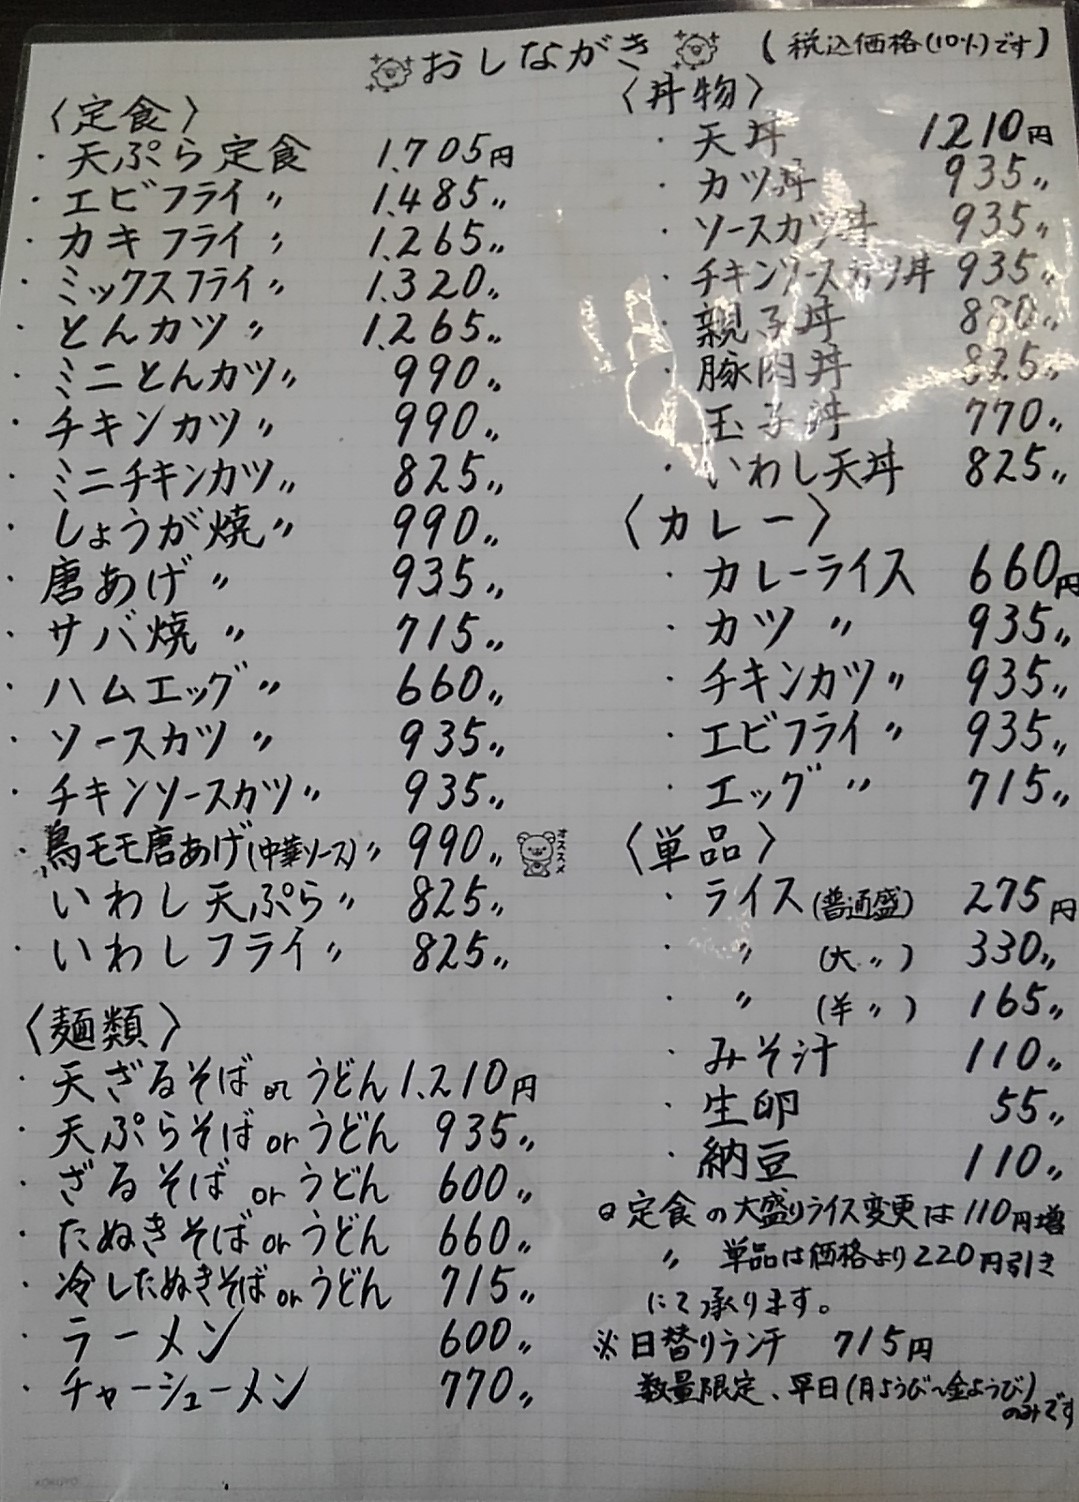 おしながき (税込価格(10%)です)
〈定食〉
・天ぷら定食 1.705円
・エビフライ〃 1.485〃
・カキフライ〃 1.265〃
・ミックスフライ〃 1.320〃
・とんカツ〃 1.265〃
・ミニとんカツ〃 990〃
・チキンカツ〃 990〃
・ミニチキンカツ〃 825〃
・しょうが焼〃 990〃
・唐あげ〃 935〃
・サバ焼〃 715〃
・ハムエッグ〃 660〃
・ソースカツ〃 935〃
・チキンソースカツ〃 935〃
・鳥モモ唐あげ(中華ソース)〃 990〃 オススメ
・いわし天ぷら〃 825〃
・いわしフライ〃 825〃
〈麺類〉
・天ざるそばorうどん 1.210円
・天ぷらそばorうどん 935〃
・ざるそばorうどん 600〃
・たぬきそばorうどん 660〃
・冷したぬきそばorうどん 715〃
・ラーメン 600〃
・チャーシューメン 770〃
〈丼物〉
・天丼 1210円
・カツ丼 935〃
・ソースカツ丼 935〃
・チキンソースカツ丼 935〃
・親子丼 880〃
・豚肉丼 825〃
・玉子丼 770〃
・いわし天丼 825〃
〈カレー〉
・カレーライス 660円
・カツ〃 935〃
・チキンカツ〃 935〃
・エビフライ〃 935〃
・エッグ〃 715〃
〈単品〉
・ライス(普通盛) 275円
・〃(大〃) 330〃
・〃(半〃) 165〃
・みそ汁 110〃
・生卵 55〃
・納豆 110〃
◎定食の大盛りライス変更は110円増
〃 単品は価格より220円引き
にて承ります。
※日替りランチ 715円
数量限定、平日(月ようび〜金ようび)
のみです
KOKUYO